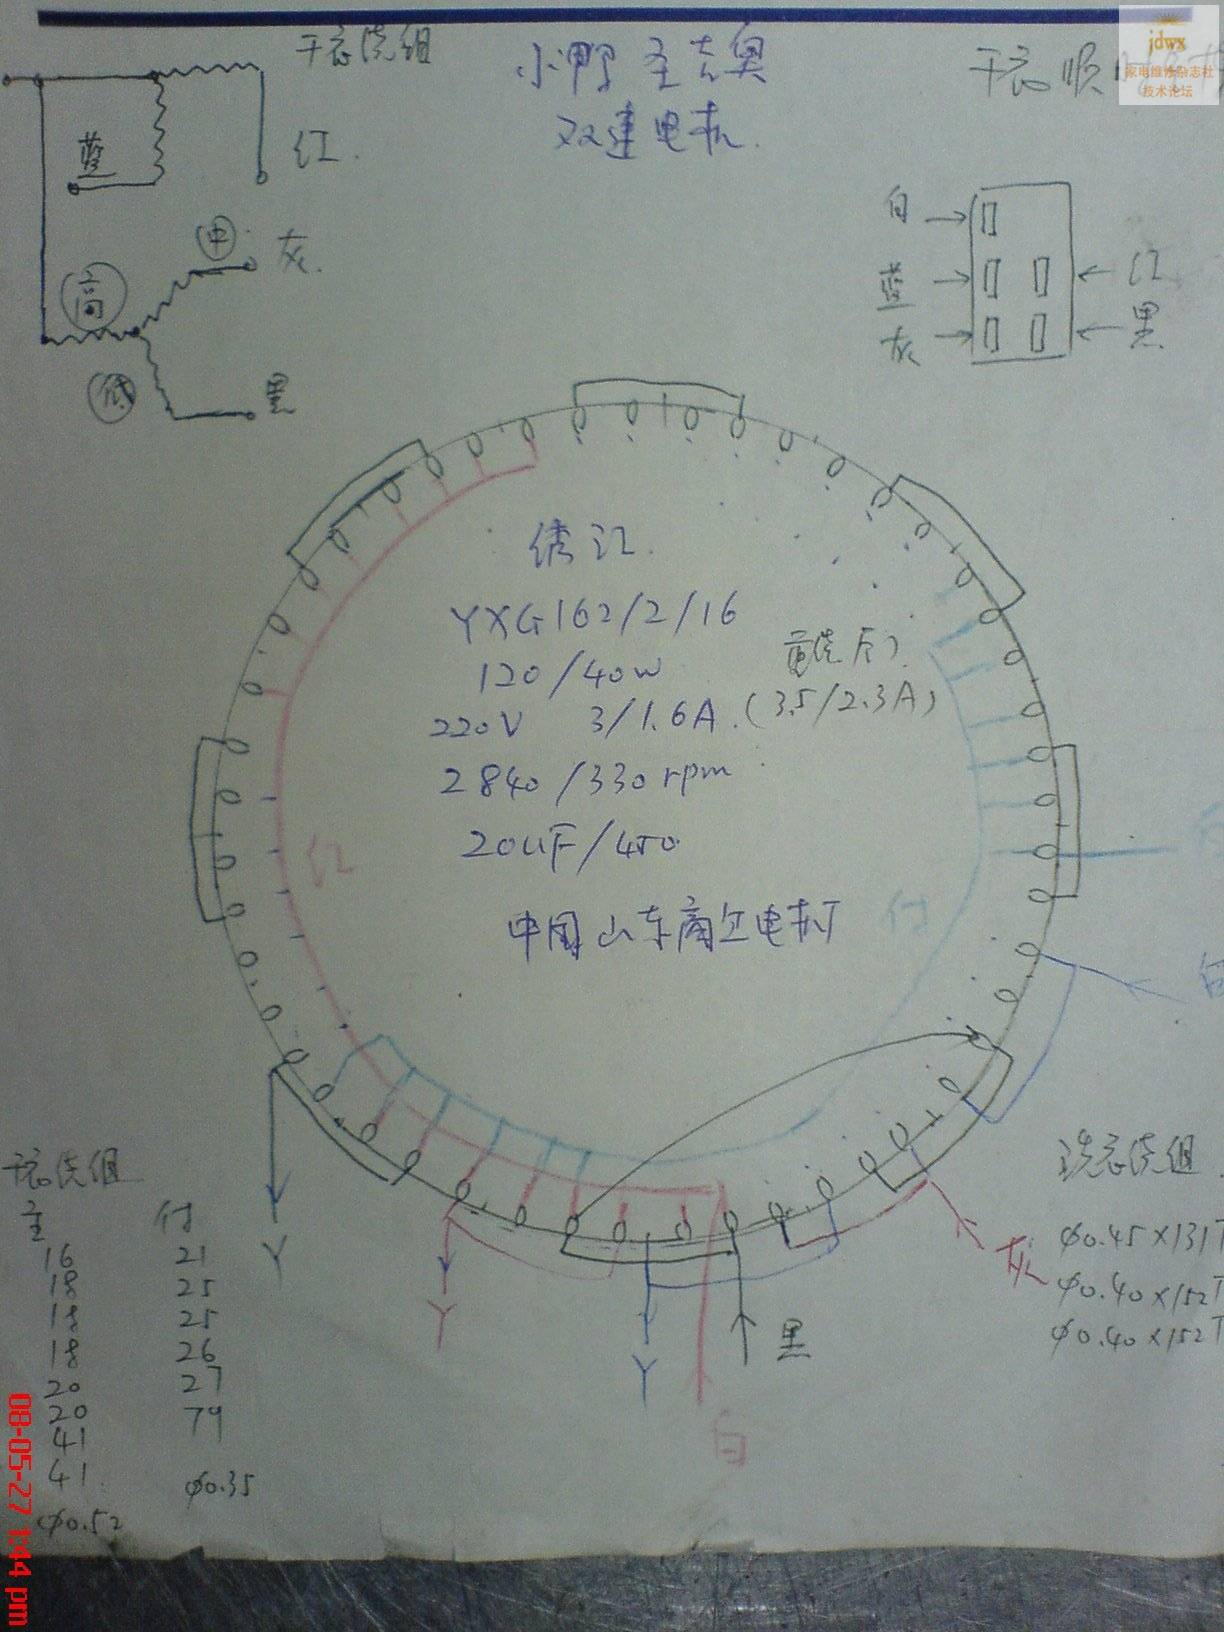 jdwx
家电维修杂志社
技术论坛
干衣绕组
双速电机
干衣顺
蓝
红.
中
灰.
高
低
黑
白
蓝
灰
红
黑
YXG162/2/16
120/40w
220V 3/1.6A.(3.5/2.3A)
2840/330rpm
20uF/450
红
付
中国山东商江电机厂
白
干衣绕组
主 付
16 21
18 25
18 25
18 26
20 27
20 79
41
41
φ0.35
φ0.52
Y
Y
Y
黑
白
灰
洗衣绕组
φ0.45×131T
φ0.40×152T
φ0.40×152T
08-05-27 1:44 pm